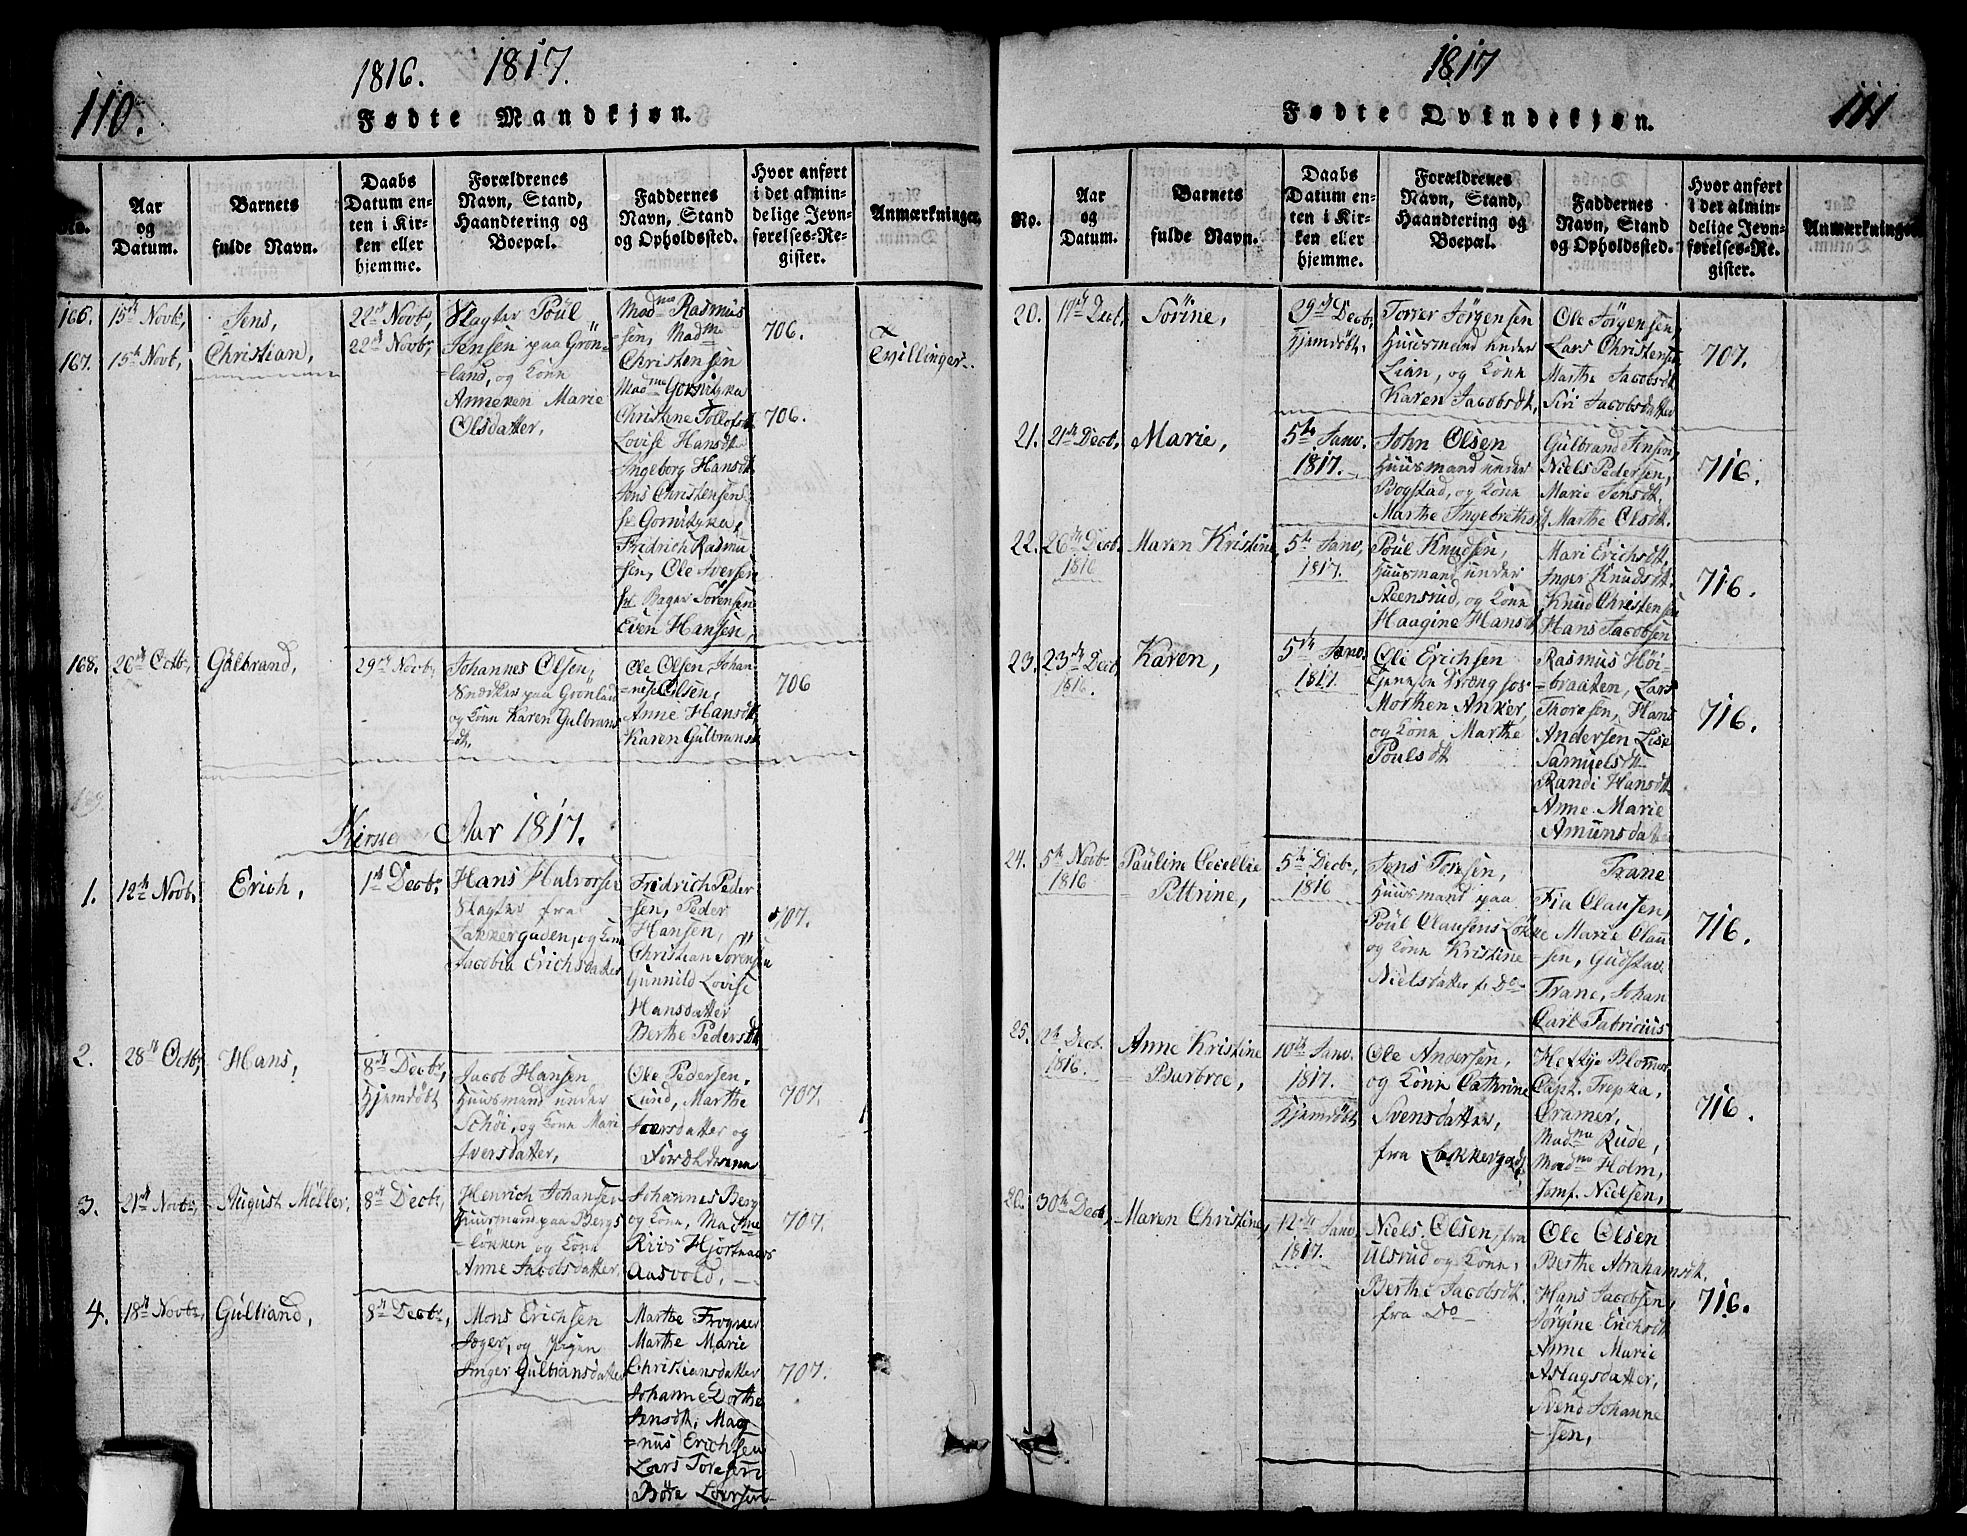 110.
1816. 1817.
Fødte Mandkjøn.
No.
Aar
og
Datum.
Barnets
fulde Navn.
Daabs
Datum en-
ten i Kir-
ken eller
hjemme.
Forældrenes
Navn, Stand,
Haandtering og
Boepæl.
Faddernes
Navn, Stand
og Opholdssted.
Hvor anført
i det almin-
delige Jevn-
førelses-Re-
gister.
Anmærkninger.
166. 15de Novbr,
Jens,
22de Novbr,
Slagter Poul
Jensen paa Grön-
-land, og Kone
Anneken Marie
Olsdatter,
Madme Rasmus
sen, Madme
Christensen
Madme Gornitzka
Christene Tollofsdt
Lovise Hansdt
Ingeborg Hansdt
Jens Christensen
hr Gornitzka,
Fridrich Rasmu
sen, Ole Iversen
hr Bager Sörensen
Even Hansen,
706.
167. 15de Novb,
Christian,
22de Novbr,
706.
Tvillinger.
168. 26de Octbr,
Gulbrand,
29de Novbr,
Johannes Olsen,
Snedker paa Grönland
og Kone Karen Gulbrans
dt,
Ole Olsen, Johan
-nes Olsen,
Anne Hansdt
Karen Gulbransdt
706
Kirke Aar 1817.
1. 12te Novbr,
Erich,
1ste Decbr,
Hans Halvorsen
Slagter fra
Lakkergaden, og Kone
Jacobia Erichsdatter
Fridrich Peder
sen, Peder
Hansen,
Christian Sörensen
Gunnild Lovise
Hansdatter
Berthe Pedersdt
707.
2. 28de Octbr,
Hans,
8de Decbr,
Hjemdöbt
Jacob Hansen
Huusmand under
Schöi, og Kone Mari
Iversdatter,
Ole Pedersen,
Lund, Marthe
Iversdatter og
707.
3. 21de Novbr,
August Möller,
8de Decbr,
Henrich Johansen
Huusmand paa Bergs
-lökken og Kone
Anne Jacobsdatter
Johannes Berg
og Kone, Madme
Riis Hjortnaas
Aasvold,
707.
4. 18de Novbr,
Gulbrand,
8de Decbr,
Mons Erichsen
Jæger, og Pigen
Inger Gulbransdatter
Marthe Frogner
Marthe Marie
Christiansdatter
Johanne Dorthe
Jensdt, Mag
-nus Erichsen
Lars Toresen
707.
1817
Fødte Qvindekjøn.
111
No.
Aar
og
Datum.
Barnets
fulde Navn.
Daabs
Datum en-
ten i Kir-
ken eller
hjemme.
Forældrenes
Navn, Stand,
Haandtering og
Boepæl.
Faddernes
Navn, Stand
og Opholdssted.
Hvor anført
i det almin-
delige Jevn-
førelses-Re-
gister.
Anmærkninger
20. 17de Decb,
Sörine,
29de Decbr,
Hjemdöbt.
Torger Jörgensen
Huusmand under
Lian, og Kone
Karen Jacobsdt,
Ole Jörgensen,
Lars Christensen
Marthe Jacobsdt
Siri Jacobsdatter
707.
21. 21de Decbr,
Marie,
5te Janv.
1817.
John Olsen
Huusmand under
Bogstad, og Kone
Marthe Ingebrethsd
Gulbrand Jensen,
Niels Pedersen,
Marie Jensdt,
Marthe Olsdt.
716.
22. 26de Decbr,
1816
Maren Kristine
5te Janv,
1817.
Poul Knudsen,
Huusmand under
Steensrud, og Kone
Haagine Hansdt
Mari Erichsdt
Inger Knudsdt
Knud Christensen
Hans Jacobsen
716.
23. 23de Decbr,
1816.
Karen,
5te Janv.
1817
Ole Erichsen
Tjeneste Dreng hos
Morthen Anker,
og Kone Marthe
Poulsdt
Rasmus Höi-
-braaten, Lars
Thoresen, Hans
Andersen Lise
Samuelsdt
Randi Hansdt
Anne Marie
Amunsdatter
716.
24. 5te Novbr
1816
Pauline Cecillie
Pettrine,
5te Decbr,
1816
Jens Toresen,
Huusmand paa
Poul Clausens Lökke
og Kone Kristine
Nielsdatter fr Do
Trane
Fia Clausen,
Marie Clau
sen, Gustav
Trane, Johan
Carl Fabricius
716.
25. 2de Decbr.
1816.
Anne Kristine
Burbroe,
10de Janv.
1817.
Hjemdöbt
Ole Andersen,
og Kone Cathrine
Svensdatter,
fra Lakkergad,
Heftye Blomor
Capt. Trepka,
Cramer,
Madme Rude,
Madme Holm,
Jomf. Nielsen,
716.
26. 30te Decbr,
Maren Christine,
12te Janv
1817.
Niels Olsen, fra
Ulsrud og Kone,
Berthe Jacobsdt.
fra Do
Ole Olsen
Berthe Abrahamsdt.
Hans Jacobsen,
Jörgine Erichsdt
Anne Marie
Aslagsdatter,
Svend Johanne
-sen,
716.